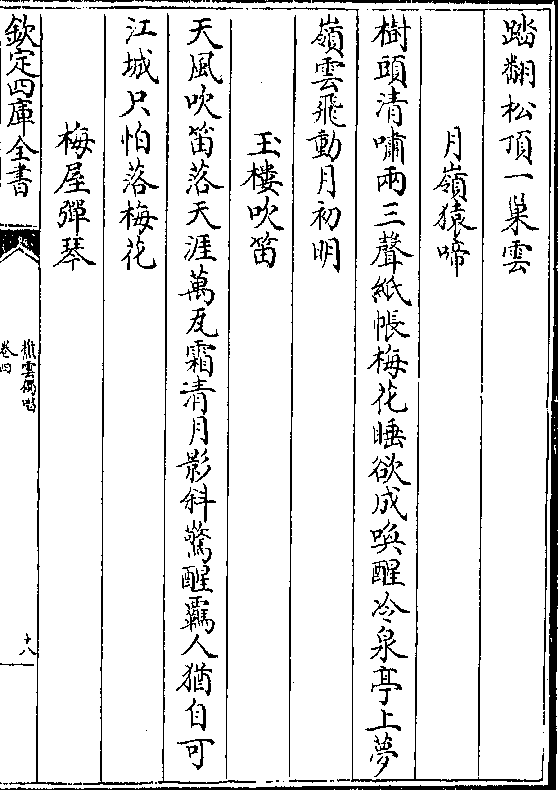 踏翻松頂一巢雲
月嶺猿啼
樹頭清嘯兩三聲紙帳梅花睡欲成喚醒冷泉亭上夢
嶺雲飛動月初明
玉樓吹笛
天風吹笛落天涯萬瓦霜清月影斜驚醒羈人猶自可
江城只怕落梅花
梅屋彈琴
欽定四庫全書
樵雲獨唱
卷四
十八